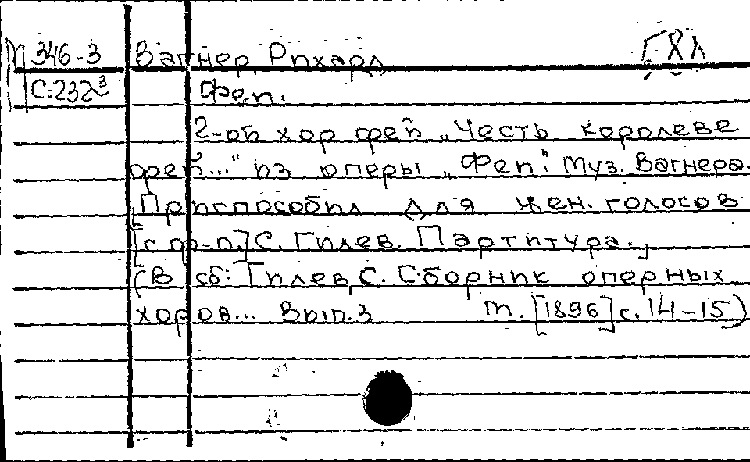 М 346-3 Вагнер, Рихард
С.232³ Феи.
2-ой хор фей „Честь королеве
фей..." из оперы „Феи". Муз. Вагнера.
Приспособил для жен. голосов
[с фр-п.] С. Гилев. Партитура.
(В сб: Гилев, С. Сборник оперных
хоров... Вып.3 М. [1896] с. 14-15)